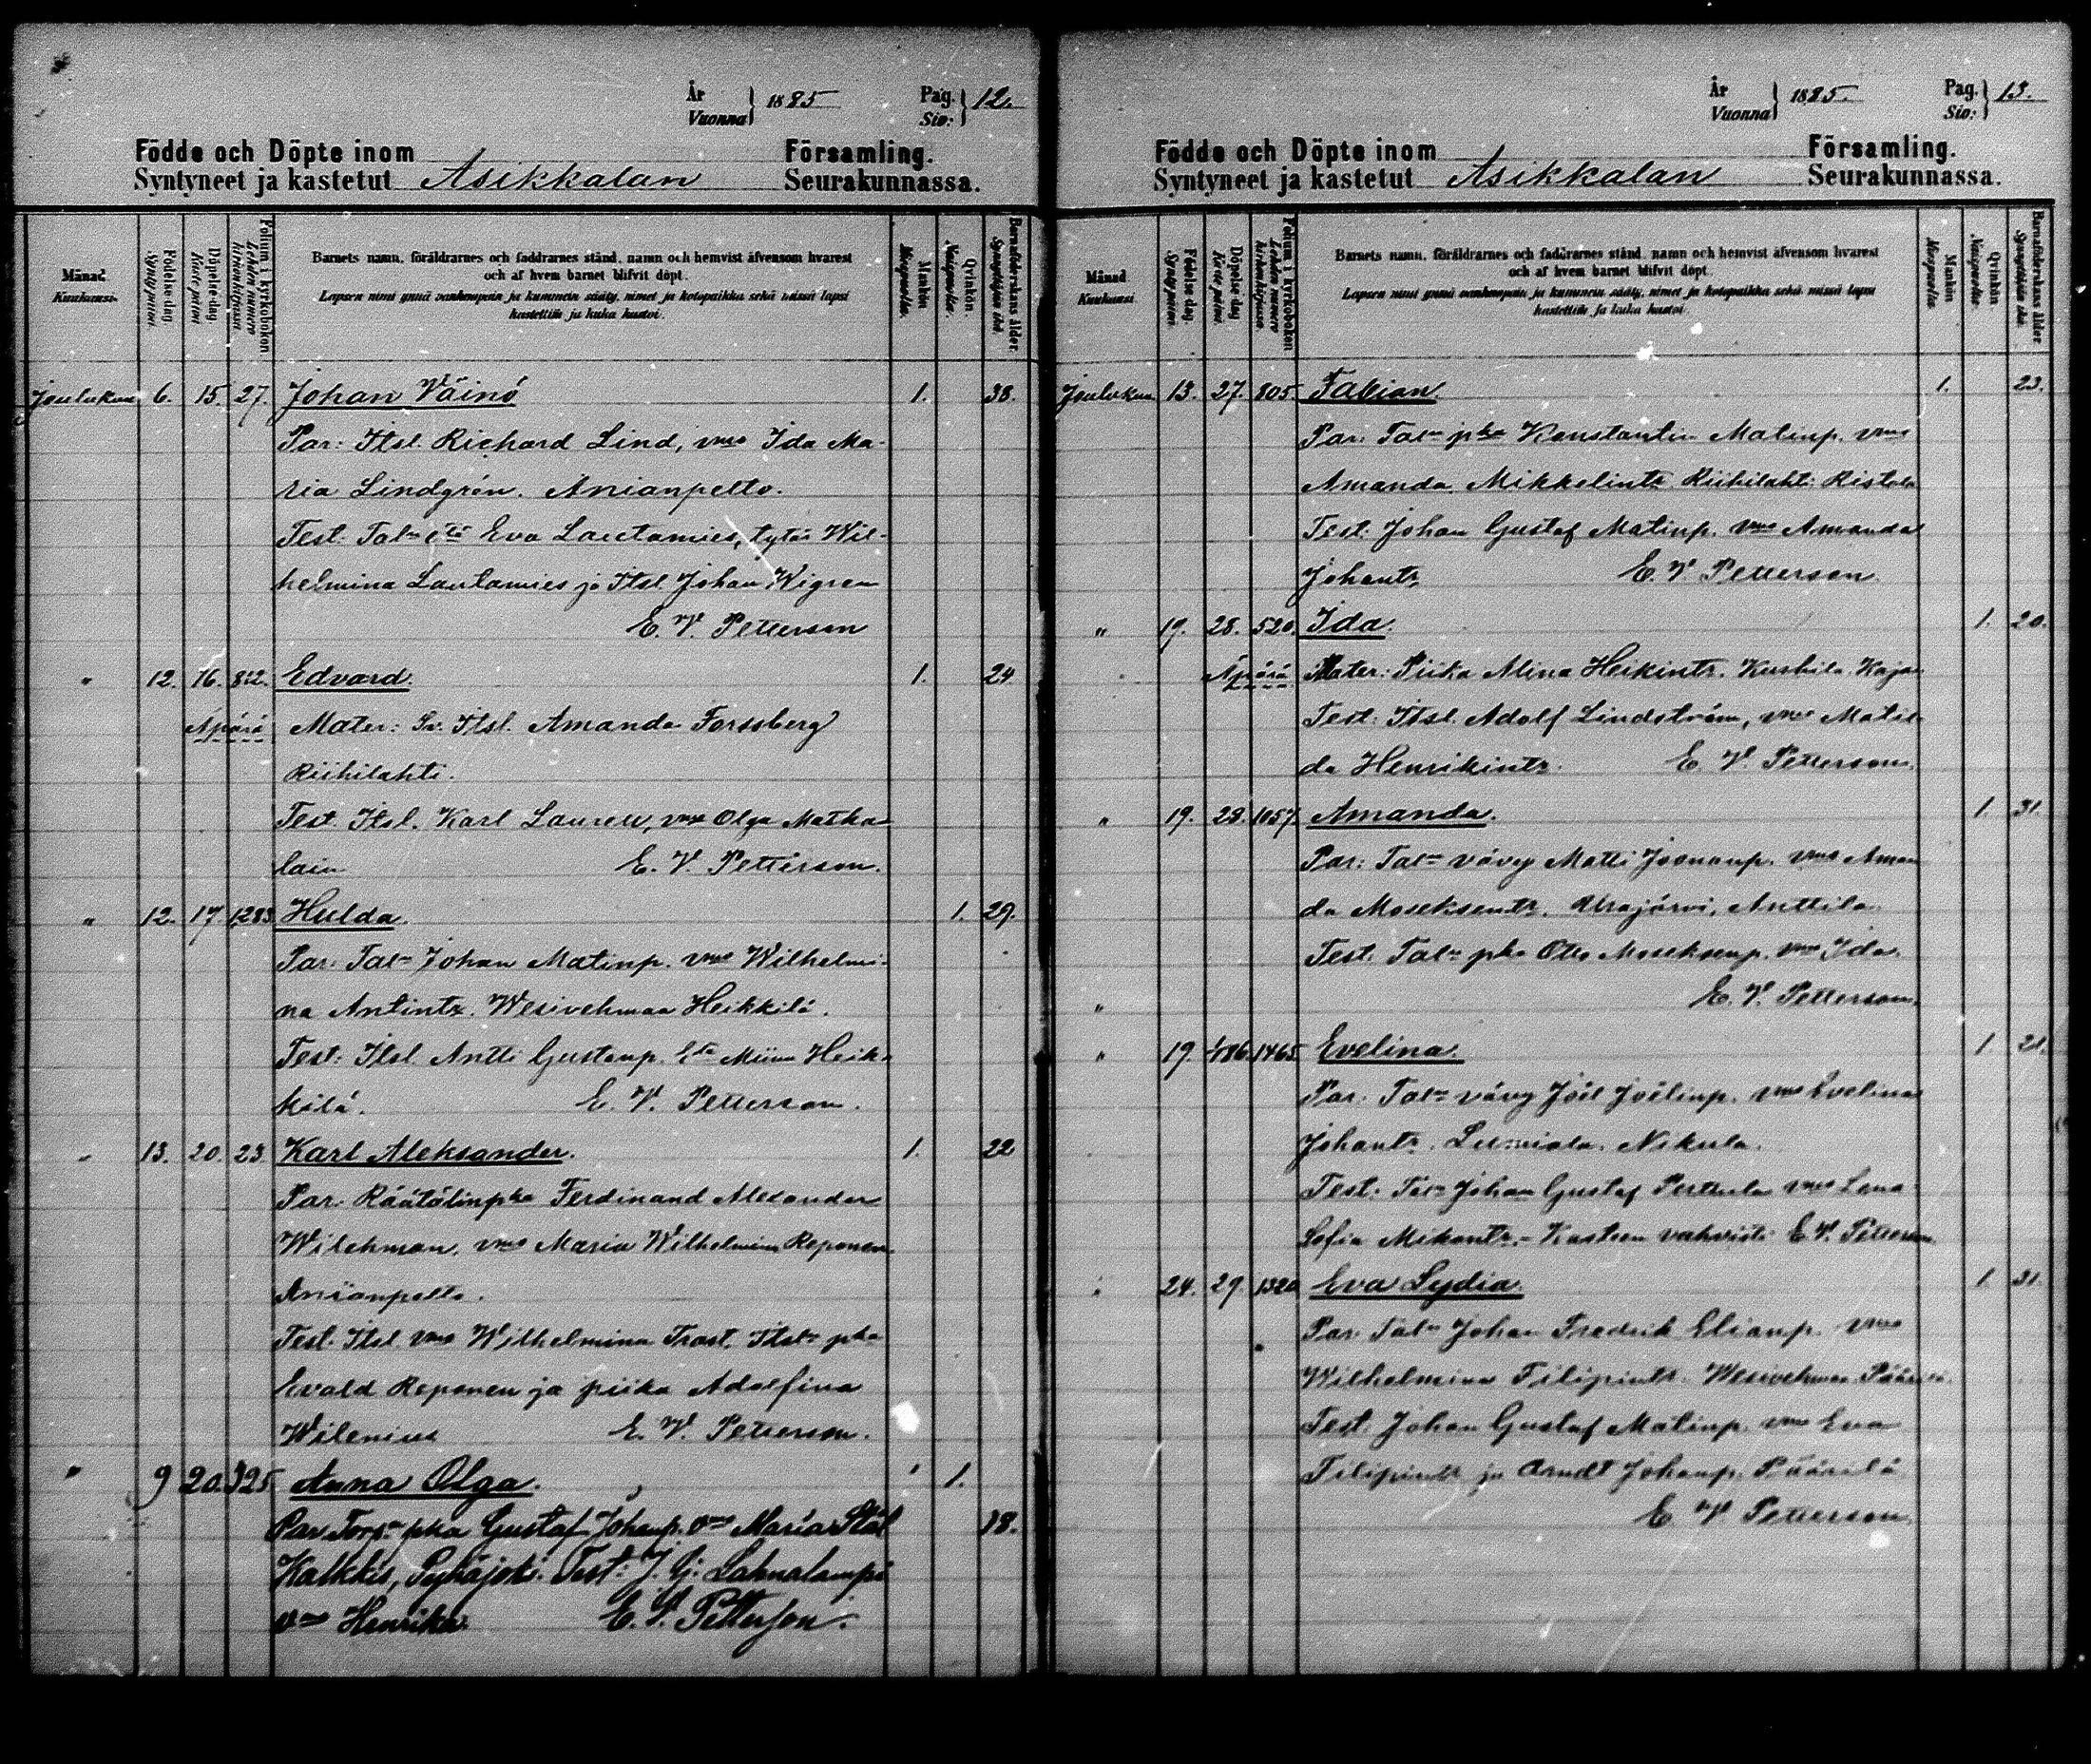 År
Vuonna } 1885 Pag.
Siv: } 12.
Födde och Döpte inom Församling.
Syntyneet ja kastetut Asikkalan Seurakunnassa.
Månad
Kuukausi.
Födelse-dag.
Synty-päivä
Döpelse-dag
Kaste-päivä
Folium i kyrkoboken
Lehden numero kirkonkirjassa
Barnets namn, föräldrarnes och faddrarnes stånd, namn och hemvist äfvensom hvarest
och af hvem barnet blifvit döpt.
Lapsen nimi ynnä vanhempain ja kummein sääty, nimet ja kotopaikka sekä missä lapsi
kastettiin ja kuka kastoi.
Mankön
Miespuolia.
Qvinkön
Vaispuolia.
Barnaföderskans ålder.
Synnyttäjän ikä.
Joulukuu 6. 15. 27. Johan Väinö 1. 38.
Par: Itsl. Richard Lind, vmo Ida Ma-
ria Lindgrén. Anianpelto.
Test. Eva Lautamies, tytär Wil-
helmina Lautamies ja Itsl. Johan Wigren
E. V. Petterson
" 12. 16. 812. Edvard 1. 24
Äpärä Mater: Itsl. Amanda Forssberg
Riihilahti.
Test. Itsl. Karl Lauren, vmo Olga Matka
lain E. V. Petterson.
" 12. 17. 1283. Hulda. 1. 29.
Par: Taln Johan Matinp. vmo Wilhelmi-
na Antintr. Wesivehmaa Heikkilä.
Test: Itsl. Antti Gustavp. Miina Heik-
kilä. E. V. Petterson.
" 13. 20. 23. Karl Aleksander. 1. 22
Par: Räätälinpka Ferdinand Alexander
Wilchman, vmo Maria Wilhelmina Reponen
Anianpelto.
Test. Itsl. vmo Wilhelmina Trast, Itsln pka
Evald Reponen ja piika Adolfina
Wilenius E. V. Petterson.
" 9 20. 325 Anna Olga. 1.
Par. Torpn pka Gustaf Johanp. vmo Maria Stål 18.
Kalkkis, Pyhäjok: Test: J. G: Lahnalampi
vmo Henrika. E. V. Petterson.
År
Vuonna } 1885. Pag.
Siv: } 13.
Födde och Döpte inom Församling.
Syntyneet ja kastetut Asikkalan Seurakunnassa.
Månad
Kuukausi.
Födelse-dag.
Synty-päivä
Döpelse-dag
Kaste-päivä
Folium i kyrkoboken
Lehden numero kirkonkirjassa
Barnets namn, föräldrarnes och faddrarnes stånd, namn och hemvist äfvensom hvarest
och af hvem barnet blifvit döpt.
Lapsen nimi ynnä vanhempain ja kummein sääty, nimet ja kotopaikka sekä missä lapsi
kastettiin ja kuka kastoi.
Mankön
Miespuolia.
Qvinkön
Vaispuolia.
Barnaföderskans ålder
Synnyttäjän ikä.
Joulukuu 13. 27. 805. Fabian. 1. 23.
Par: Taln pka Konstantin Matinp. vmo
Amanda Mikkelintr. Riihilahti Ristola
Test: Johan Gustaf Matinp. vmo Amanda
Johantr. E. V. Petterson.
" 19. 28. 520. Ida. 1. 20.
Äpärä Mater: Piika Alina Heikintr. Kurhila
Test: Itsl. Adolf Lindström, vmo Matil
da Henrikintr. E. V. Petterson.
" 19. 28. 1057. Amanda. 1. 31.
Par: Taln vävy Matti Joonanp. vmo Aman
da Moseksentr. Urajärvi, Anttila
Test. Taln pka Otto Moseksenp. vmo Ida.
" E. V. Petterson.
" 19. 1465. Evelina. 1 21.
Par: Taln vävy Joël Joëlinp. vmo Evelina
Johantr. Nikula.
Test: Taln Johan Gustaf Perttula vmo Lena
Sofia Mikontr. - Kasteen vahvisti E. V. Petterson
" 24. 29. 1320 Eva Lydia. 1 31.
Par. Taln Johan Fredrik Elianp. vmo
Wilhelmina Filipintr. Wesivehmaa
Test. Johan Gustaf Matinp. vmo Eva
Filipintr ja Arndt Johanp. Päärilä
E. V. Petterson.